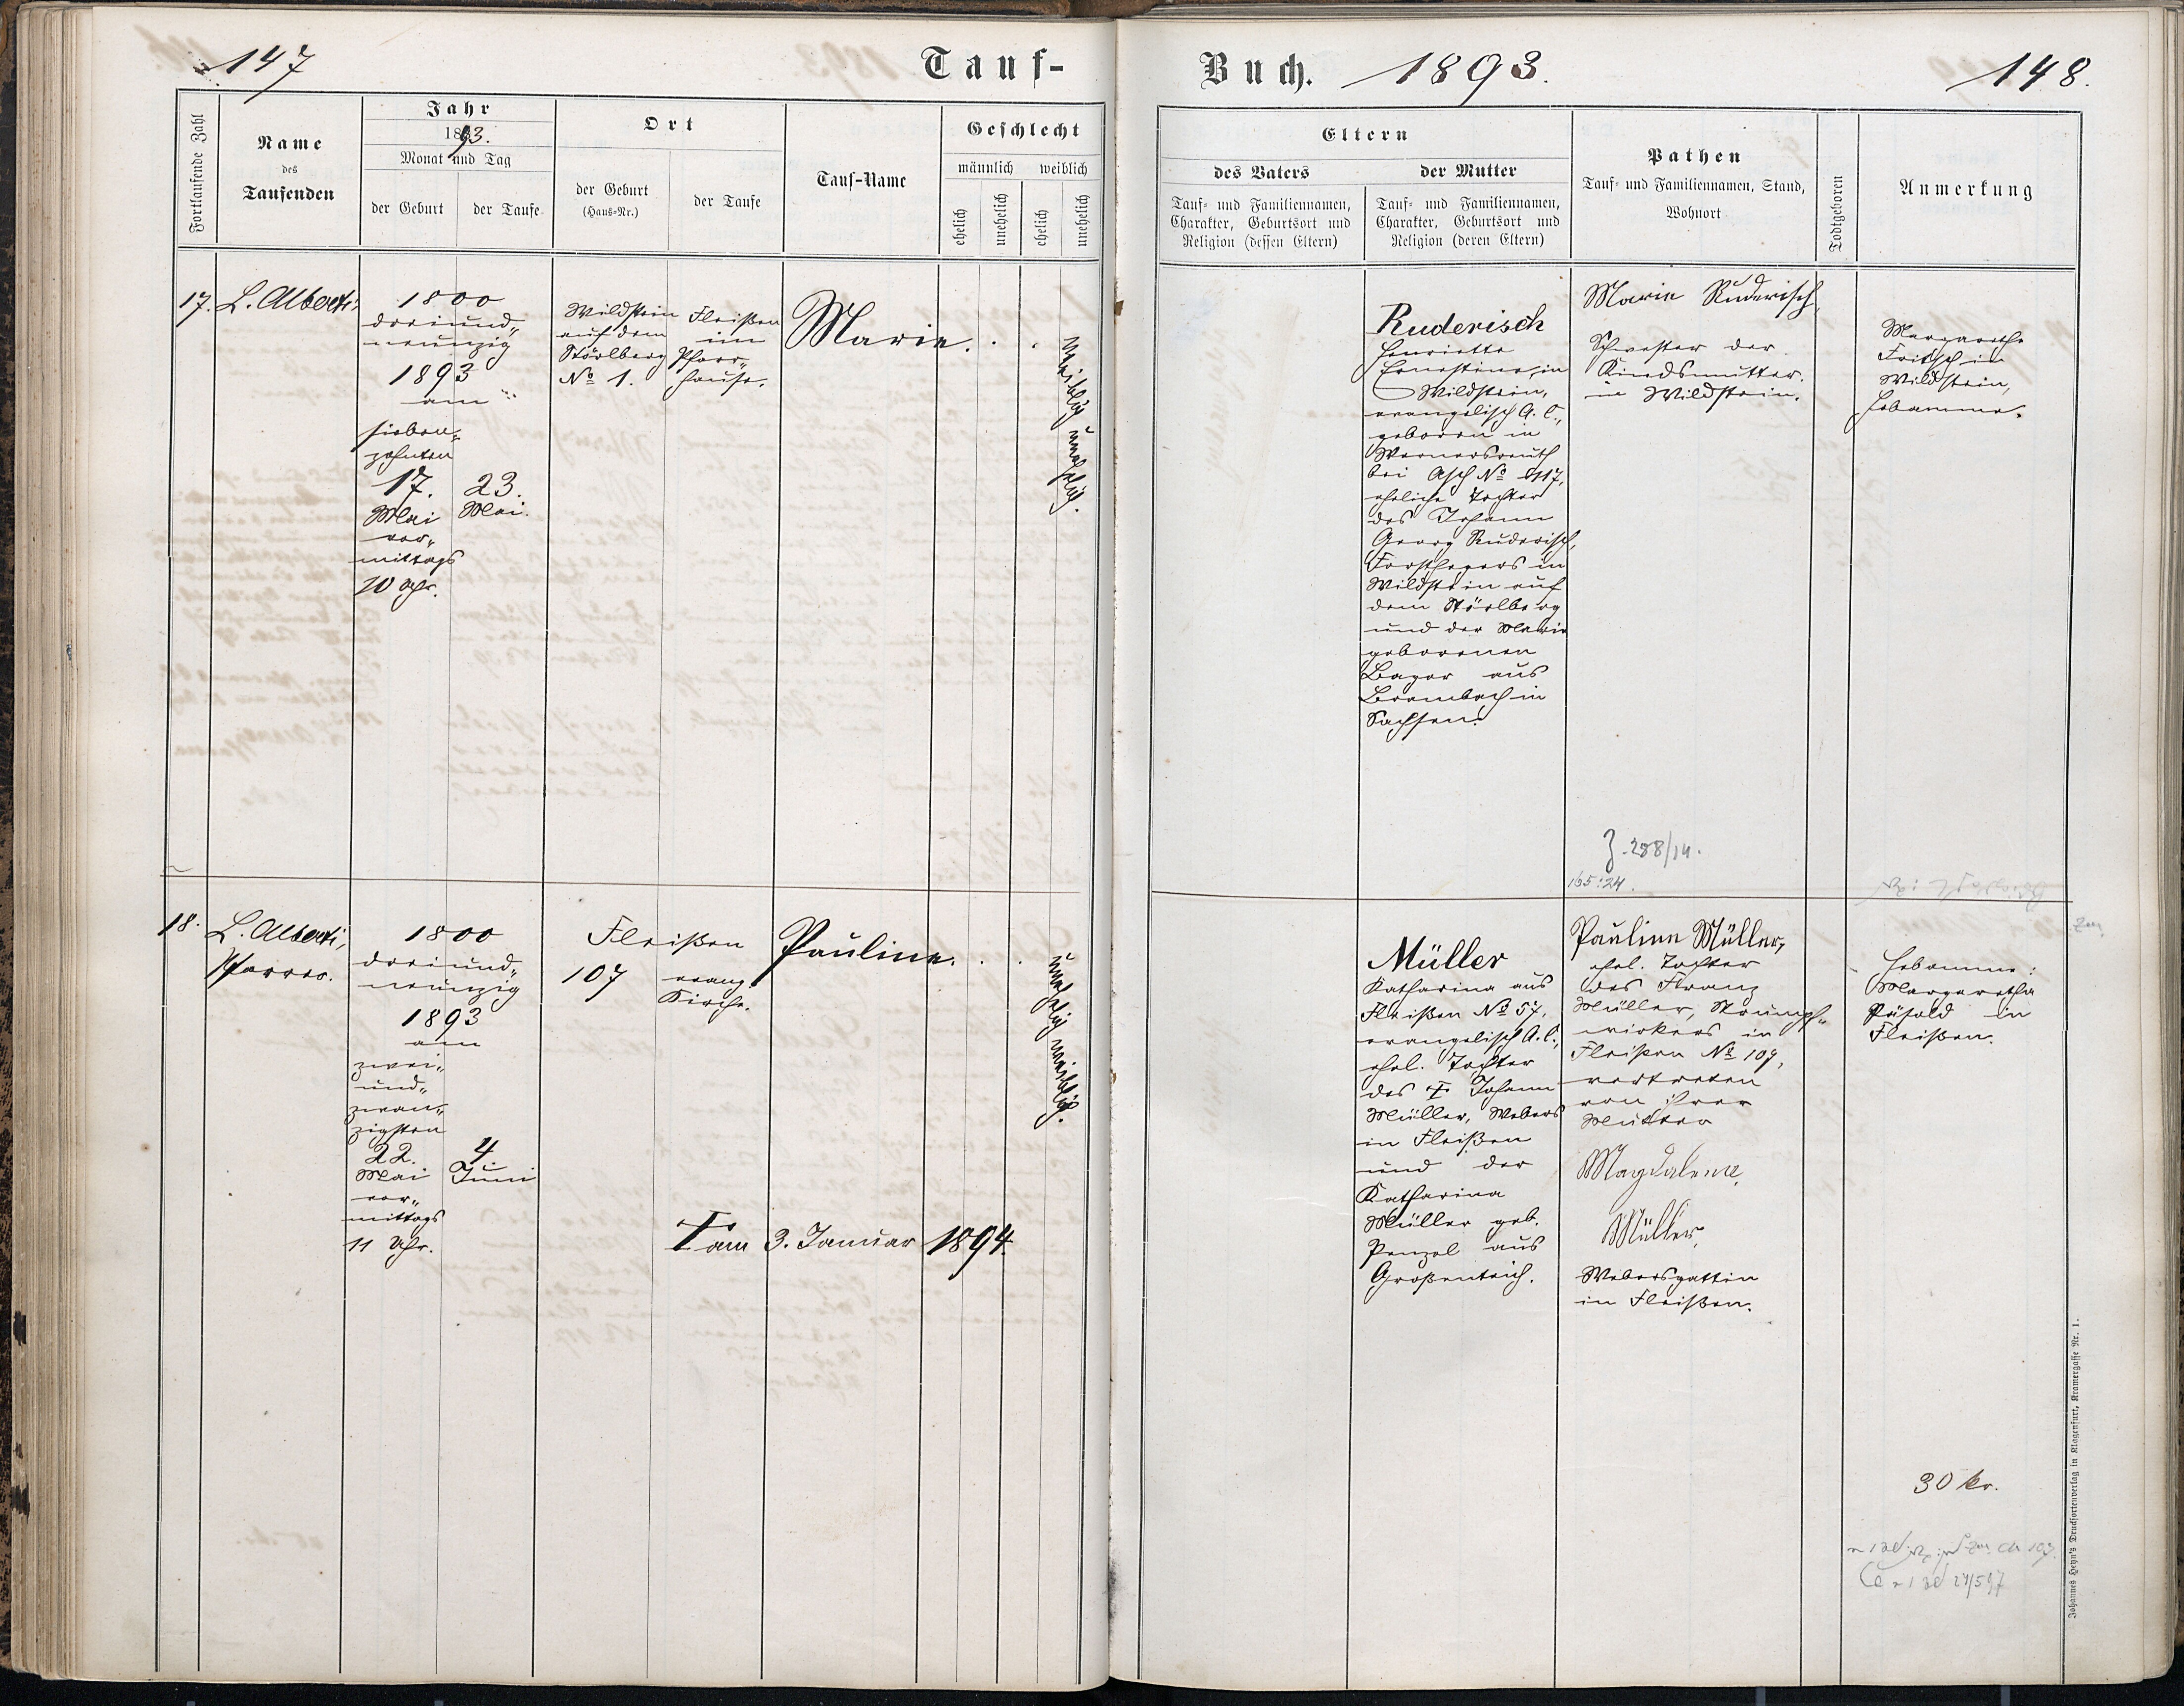 147
Tauf-
Fortlaufende Zahl
Name
des
Taufenden
Jahr
1893.
Monat und Tag
der Geburt
der Taufe
Ort
der Geburt
(Haus-Nr.)
der Taufe
Tauf-Name
Geschlecht
männlich weiblich
ehelich
unehelich
ehelich
unehelich
17. L. Alberti,
1800
dreiund„
neunzig
1893
am
sieben„
zehnten
17.
Mai
vor„
mittags
10 Uhr.
23.
Mai.
Wildstein
auf dem
Störlberg
No 1.
Fleißen
im
Pfarr„
hause.
Marie.
weiblich unehelich.
18. L. Alberti,
Pfarrer.
1800
dreiund„
neunzig
1893
am
zwei„
und„
zwan„
zigsten
22.
Mai
vor„
mittags
11 Uhr.
4.
Juni
Fleißen
107
evang.
Kirche.
Pauline.
unehelich weiblich.
† am 3. Januar 1894.
Buch. 1893.
148.
Eltern
des Vaters
Tauf- und Familiennamen,
Charakter, Geburtsort und
Religion (dessen Eltern)
der Mutter
Tauf- und Familiennamen,
Charakter, Geburtsort und
Religion (deren Eltern)
Pathen
Tauf- und Familiennamen, Stand,
Wohnort
Todtgeboren
Anmerkung
Ruderisch
Henriette
Ernestine, in
Wildstein,
evangelisch A. C.,
geboren in
Wernersreuth
bei Asch No 117,
eheliche Tochter
des Johann
Georg Ruderisch,
Forsthegers in
Wildstein auf
dem Störlberg
und der Marie
geborenen
Bayer aus
Brambach in
Sachsen.
Marie Ruderisch,
Schwester der
Kindsmutter.
in Wildstein.
Margarethe
Fritsch in
Wildstein,
Hebamme.
Z. 288/14.
165:24.
Müller
Katharina aus
Fleißen No 57,
evangelisch A. C.,
ehel. Tochter
des † Johann
Müller, Webers
in Fleißen
und der
Katharina
Müller geb.
Penzel aus
Großenteich.
Pauline Müller,
ehel. Tochter
des Franz
Müller, Strumpf„
wirkers in
Fleißen No 109,
vertreten
von ihrer
Mutter
Magdalena
Müller,
Webersgattin
in Fleißen.
Hebamme:
Margaretha
in
Fleißen.
30 kr.
Johannes Heyn's Drucksortenverlag in Klagenfurt, Kramergasse Nr. 1.